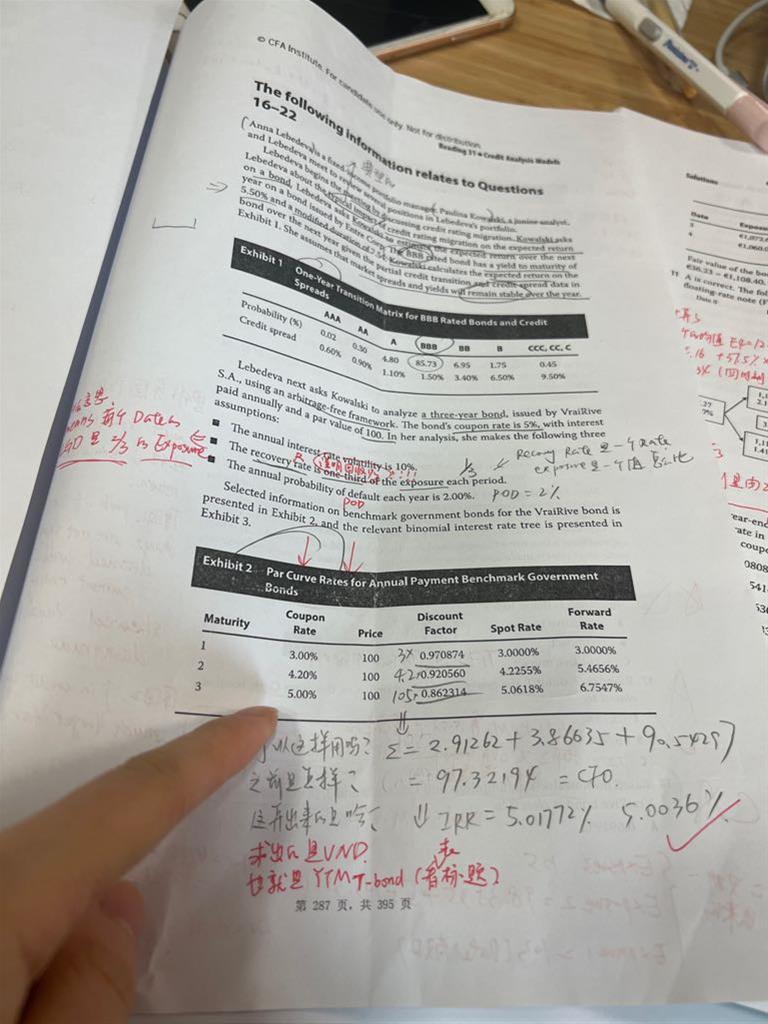 © CFA Institute. For candidate use only. Not for distribution.
Reading 31 ■ Credit Analysis Models
The following information relates to Questions
16–22
Anna Lebedeva is a fixed income portfolio manager. Paulina Kowalski, a junior analyst,
and Lebedeva meet to review several positions in Lebedeva's portfolio.
Lebedeva begins the meeting by discussing credit rating migration. Kowalski asks
Lebedeva about the typical impact of credit rating migration on the expected return
on a bond. Lebedeva asks Kowalski to estimate the expected return over the next
year on a bond issued by Entre Corp. The BBB rated bond has a yield to maturity of
5.50% and a modified duration of 7.54. Kowalski calculates the expected return on the
bond over the next year given the partial credit transition and credit spread data in
Exhibit 1. She assumes that market spreads and yields will remain stable over the year.
Exhibit 1 One-Year Transition Matrix for BBB Rated Bonds and Credit
Spreads
AAA AA A BBB BB B CCC, CC, C
Probability (%) 0.02 0.30 4.80 85.73 6.95 1.75 0.45
Credit spread 0.60% 0.90% 1.10% 1.50% 3.40% 6.50% 9.50%
Lebedeva next asks Kowalski to analyze a three-year bond, issued by VraiRive
S.A., using an arbitrage-free framework. The bond's coupon rate is 5%, with interest
paid annually and a par value of 100. In her analysis, she makes the following three
assumptions:
■ The annual interest rate volatility is 10%.
■ The recovery rate is one-third of the exposure each period.
■ The annual probability of default each year is 2.00%.
1/3
Recovery Rate 是一个 Rate
exposure 是一个值
POD = 2%
POD
Selected information on benchmark government bonds for the VraiRive bond is
presented in Exhibit 2, and the relevant binomial interest rate tree is presented in
Exhibit 3.
Exhibit 2 Par Curve Rates for Annual Payment Benchmark Government
Bonds
Maturity Coupon Rate Price Discount Factor Spot Rate Forward Rate
1 3.00% 100 3× 0.970874 3.0000% 3.0000%
2 4.20% 100 4.2× 0.920560 4.2255% 5.4656%
3 5.00% 100 105× 0.862314 5.0618% 6.7547%
以这样用吗? Σ = 2.91262 + 3.86635 + 90.5429
之前是怎样? = 97.32194 = CF0.
这弄出来的是啥? ⇓ IRR = 5.01772% 5.0036%
求出的是VND.
也就是 YTM T-bond (看标题)
表
第 287 页，共 395 页
Solutions
Date Expos
3 €1,072.
4 €1,060.
Fair value of the bo
€36.23 = €1,108.40.
11 A is correct. The fol
floating-rate note (F